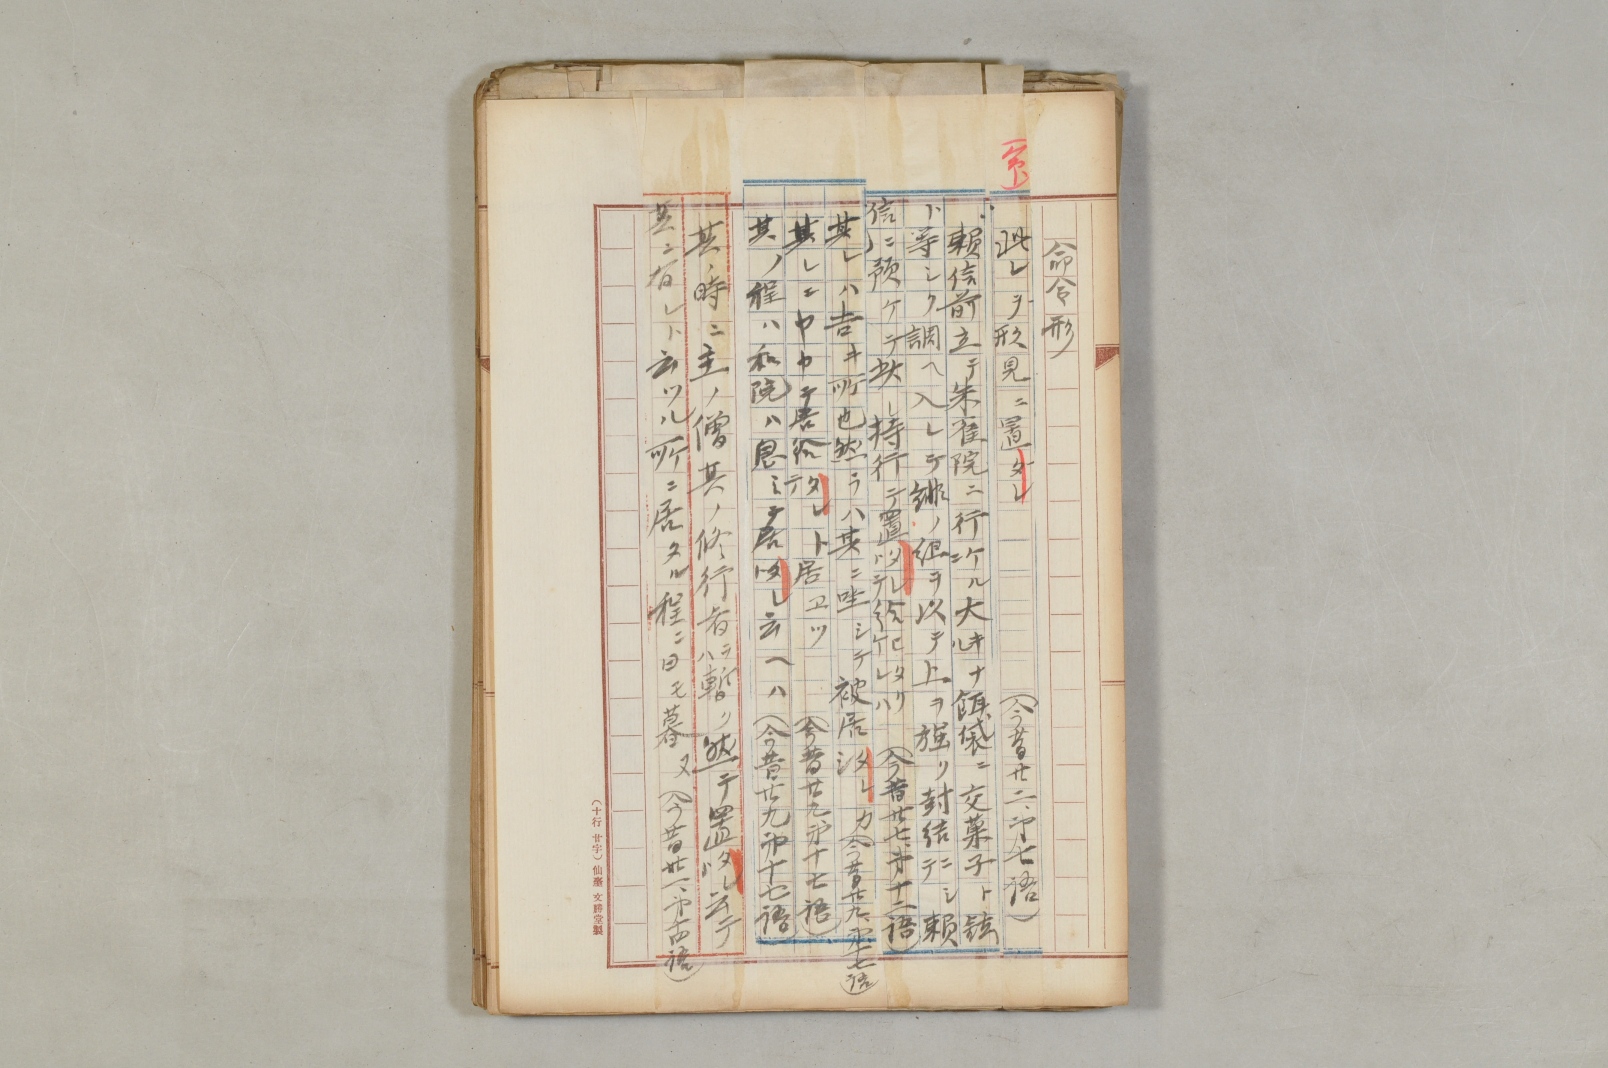 命令形
此レヲ形見ニ置タレ (今昔廿二、第七語)
頼信前立テ朱雀院ニ行ニケル大キナル餌袋ニ交菓子ト
ト等シク調ヘ入レテ緋ノ組ヲ以テ上ヲ強リ封結ニシテ頼
信ニ預ケテ此レ持行テ置タレトテ給ヒタリケレハ (今昔廿七、第十二語)
其レハ吉キ所也然ラハ其ニ坐シテ被居タレカシ (今昔廿九、第十七語)
其レニヤヤテ居給タレト居ヱツ (今昔廿九第十七語)
其ノ程ハ和院ハ息ミテ居タレ云ヘハ (今昔廿九第十七語)
其ノ時ニ主ノ僧其ノ修行者ヲハ暫ク然テ置タレ云テ
其ニ有レト云ツル所ニ居タル程ニ日モ暮ヌ
(十行 廿字) 仙台 文勝堂製